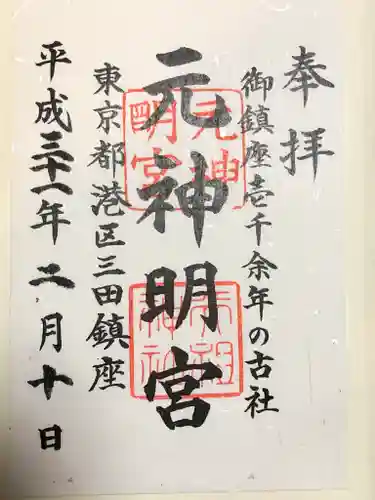 奉拝
御鎮座壱千余年の古社
元神明宮
東京都港区三田鎮座
平成三十一年二月十日